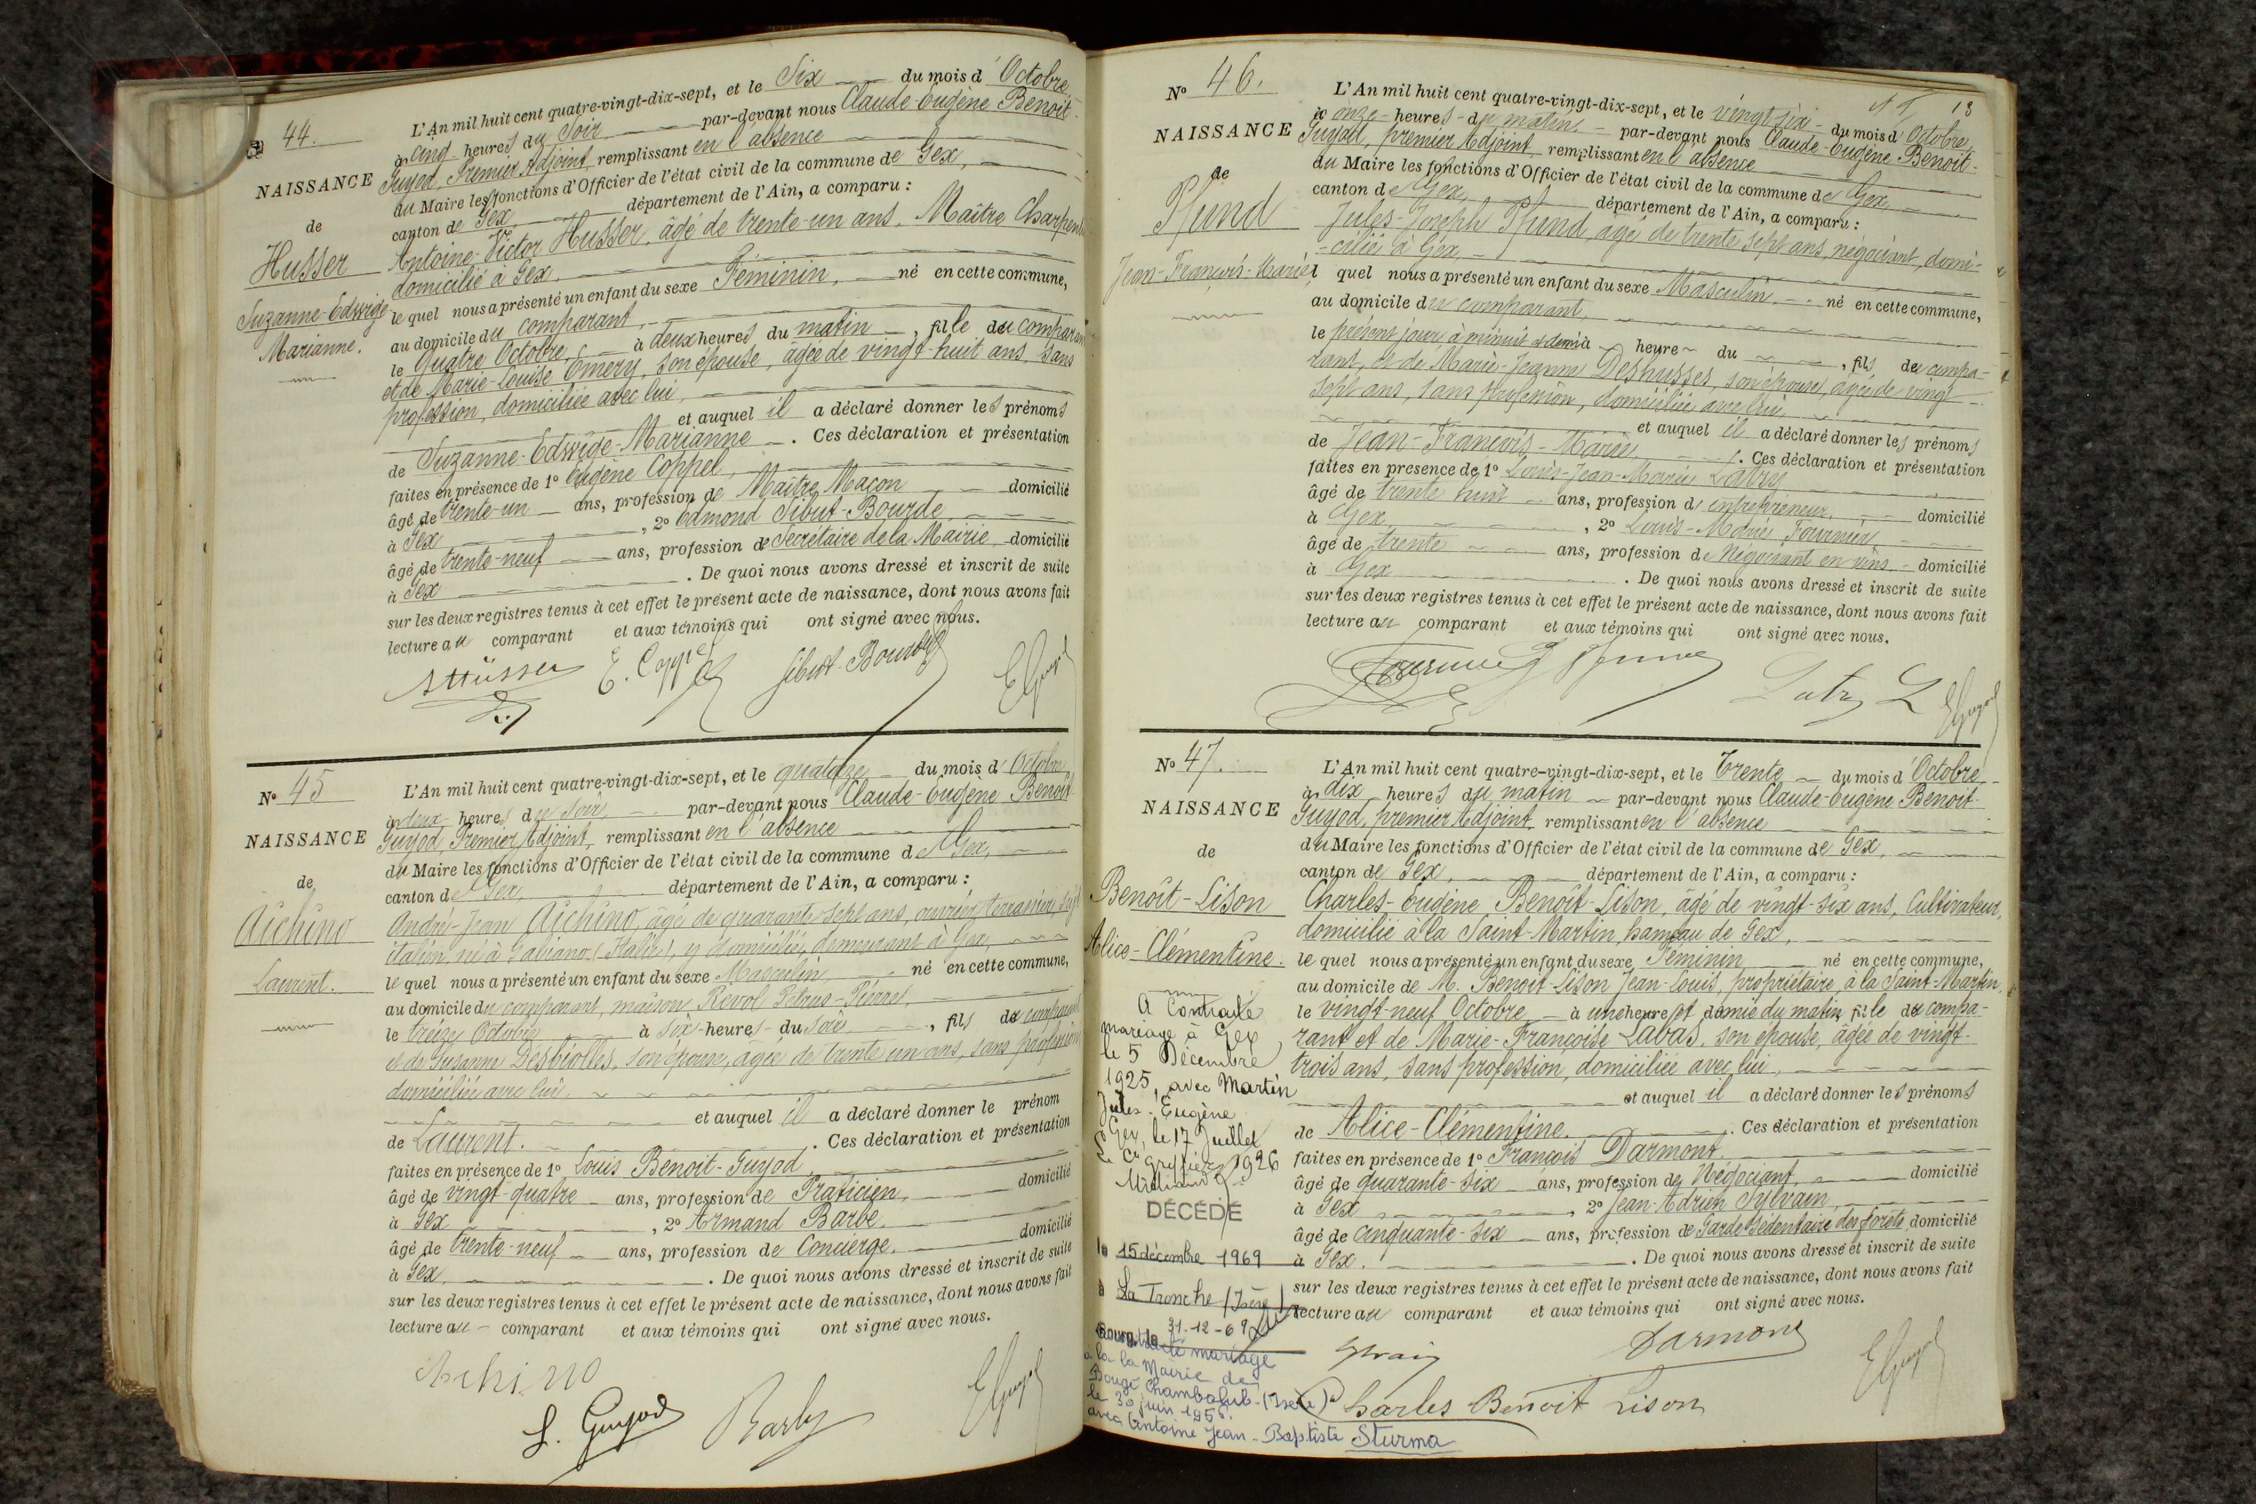 44.
NAISSANCE
de
Husser
Suzanne-Edwige
Marianne.
L'An mil huit cent quatre-vingt-dix-sept, et le Six du mois d'Octobre
à cinq heures du Soir par-devant nous Claude-Eugène Benoit-
Guyod, Premier Adjoint, remplissant en l'absence
du Maire les fonctions d'Officier de l'état civil de la commune de Gex,
canton de Gex département de l'Ain, a comparu :
Antoine-Victor Husser, âgé de trente-un ans, Maître Charpen
domicilié à Gex,
le quel nous a présenté un enfant du sexe Féminin, né en cette commune,
au domicile du comparant,
le Quatre Octobre, à deux heures du matin, fille du comparant
et de Marie-Louise Emery, son épouse, âgée de vingt-huit ans, sans
profession, domiciliée avec lui,
et auquel il a déclaré donner les prénoms
de Suzanne-Edwige-Marianne. Ces déclaration et présentation
faites en présence de 1º Eugène Coppel,
âgé de trente-un ans, profession de Maître Maçon domicilié
à Gex, 2º Edmond Sibut-Bourde,
âgé de trente-neuf ans, profession de Secrétaire de la Mairie, domicilié
à Gex. De quoi nous avons dressé et inscrit de suite
sur les deux registres tenus à cet effet le présent acte de naissance, dont nous avons fait
lecture au comparant et aux témoins qui ont signé avec nous.
AHüsser E. Coppel Sibut-Bourde EGuyod
Nº 45
NAISSANCE
de
Aichino
Laurent.
L'An mil huit cent quatre-vingt-dix-sept, et le quatorze du mois d'Octobre
à deux heures du soir par-devant nous Claude-Eugène Benoit
Guyod, Premier Adjoint, remplissant en l'absence
du Maire les fonctions d'Officier de l'état civil de la commune de Gex,
canton de Gex, département de l'Ain, a comparu :
André-Jean Aichino, âgé de quarante-sept ans, ouvrier terrassier, sujet
italien né à Gabiano (Italie), y domicilié, demeurant à Gex,
le quel nous a présenté un enfant du sexe Masculin né en cette commune,
au domicile du comparant, maison Révol Petrus-Pierre,
le treize Octobre à six heures du soir, fils du comparant
et de Susanne Desbiolles, son épouse, âgée de trente un ans, sans profession
domiciliée avec lui
et auquel il a déclaré donner le prénom
de Laurent. Ces déclaration et présentation
faites en présence de 1º Louis Benoit-Guyod,
âgé de vingt-quatre ans, profession de Praticien, domicilié
à Gex, 2º Armand Barbe,
âgé de trente-neuf ans, profession de Concierge. domicilié
à Gex,. De quoi nous avons dressé et inscrit de suite
sur les deux registres tenus à cet effet le présent acte de naissance, dont nous avons fait
lecture au comparant et aux témoins qui ont signé avec nous.
Aichino
L. Guyod Barbe EGuyod
13
Nº 46.
NAISSANCE
de
Pfund
Jean-François-Marie
L'An mil huit cent quatre-vingt-dix-sept, et le vingt six du mois d'Octobre
à onze heures du matin par-devant nous Claude-Eugène Benoit-
Guyod, premier Adjoint, remplissant en l'absence
du Maire les fonctions d'Officier de l'état civil de la commune de Gex,
canton de Gex, département de l'Ain, a comparu :
Jules-Joseph Pfund, âgé de trente sept ans, négociant, domi-
-cilié à Gex,
le quel nous a présenté un enfant du sexe Masculin né en cette commune,
au domicile du comparant,
le présent jour à minuit et demi à heure du, fils du compa-
rant, et de Marie-Jeanne Deshusses, son épouse, âgée de vingt-
sept ans, sans profession, domiciliée avec lui
et auquel il a déclaré donner les prénoms
de Jean-François-Marie. Ces déclaration et présentation
faites en présence de 1º Louis-Jean-Marie Latry
âgé de trente huit ans, profession d'entrepreneur, domicilié
à Gex, 2º Louis-Marie Fournier
âgé de trente ans, profession de Négociant en vins domicilié
à Gex. De quoi nous avons dressé et inscrit de suite
sur les deux registres tenus à cet effet le présent acte de naissance, dont nous avons fait
lecture au comparant et aux témoins qui ont signé avec nous.
Fournier J Pfund Latry L EGuyod
Nº 47.
NAISSANCE
de
Benoît-Lison
Alice-Clémentine.
A Contracté
mariage à Gex
le 5 Décembre
1925, avec Martin
Jules-Eugène
Gex, le 17 Juillet
Le Cis Greffier, 1926
DÉCÉDÉ
le 15 décembre 1969
à La Tronche (Isère)
Bourg, le 31-12-69
mariage
à la Mairie de
Bougé Chambalud-(Isère)
le 30 juin 1956.
avec Antoine Jean-Baptiste Sturma
L'An mil huit cent quatre-vingt-dix-sept, et le Trente du mois d'Octobre
à dix heures du matin par-devant nous Claude-Eugène Benoit-
Guyod, premier Adjoint, remplissant en l'absence
du Maire les fonctions d'Officier de l'état civil de la commune de Gex,
canton de Gex, département de l'Ain, a comparu :
Charles-Eugène Benoît-Lison, âgé de vingt-six ans, Cultivateur,
domicilié à la Saint-Martin, hameau de Gex,
le quel nous a présenté un enfant du sexe Féminin né en cette commune,
au domicile de M. Benoit-Lison Jean-Louis, propriétaire à la Saint-Martin,
le vingt-neuf Octobre à une heure et demie du matin, fille du compa-
rant et de Marie-Françoise Labas, son épouse, âgée de vingt-
trois ans, sans profession, domiciliée avec lui,
et auquel il a déclaré donner les prénoms
de Alice-Clémentine. Ces déclaration et présentation
faites en présence de 1º François Darmont,
âgé de quarante-six ans, profession de Négociant, domicilié
à Gex, 2º Jean-Adrien Sylvain,
âgé de cinquante-six ans, profession de Garde Sédentaire des forêts, domicilié
à Gex. De quoi nous avons dressé et inscrit de suite
sur les deux registres tenus à cet effet le présent acte de naissance, dont nous avons fait
lecture au comparant et aux témoins qui ont signé avec nous.
Darmont
EGuyod
Charles Benoit Lison